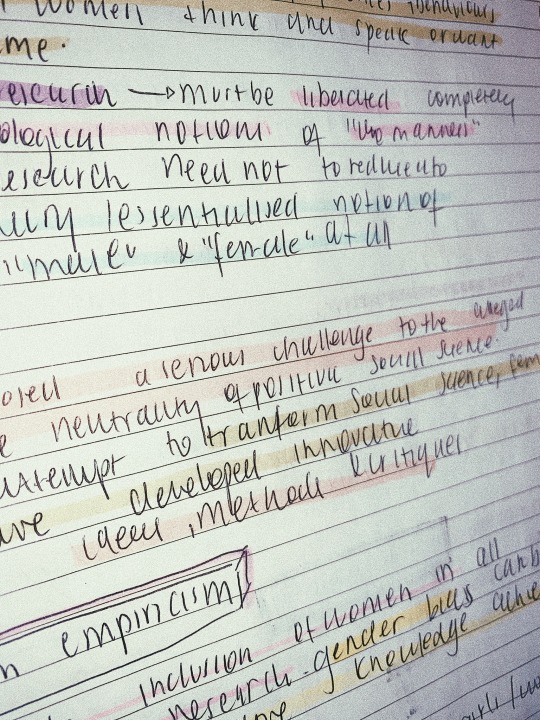 women think and speak or want
me.
→ must be liberated completely
ological notions of "two manners"
research need not to reduce to
essentialised notion of
"male" & "female" at all
a serious challenge to the alleged
neutrality of positive social science.
attempt to tranform social science, fem
ave developed innovative
ideas, methods & critiques
n empiricism
inclusion of women in all
research. gender bias can b
knowledge achie